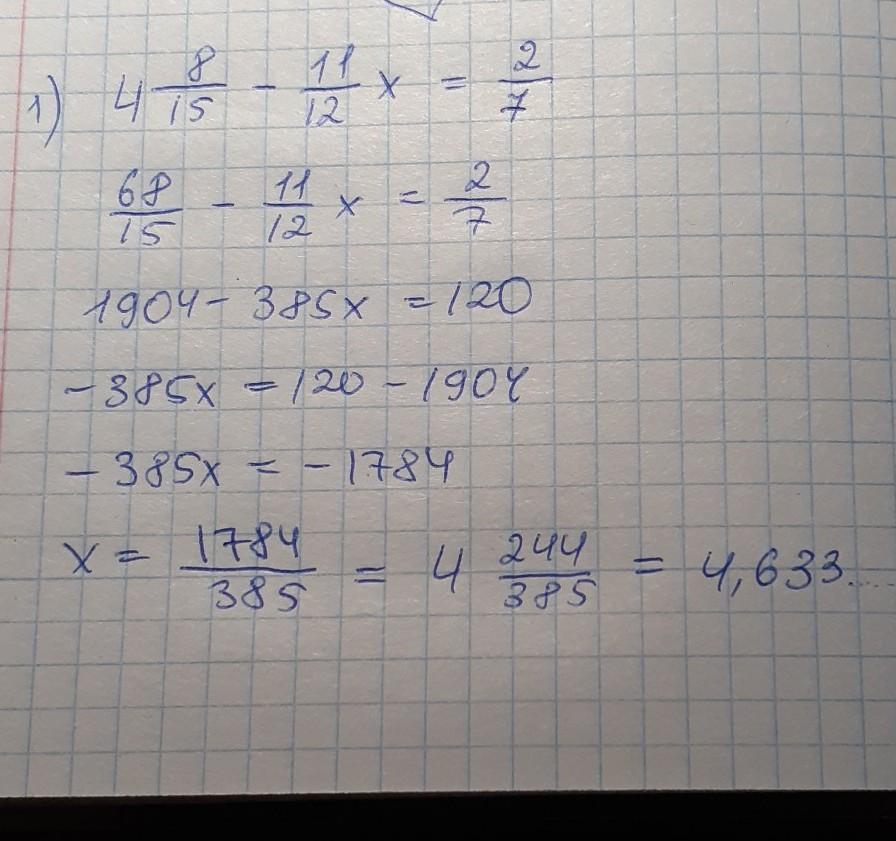 1) 4 8/15 - 11/12 x = 2/7
68/15 - 11/12 x = 2/7
1904 - 385x = 120
-385x = 120 - 1904
-385x = -1784
x = 1784/385 = 4 244/385 = 4,633...